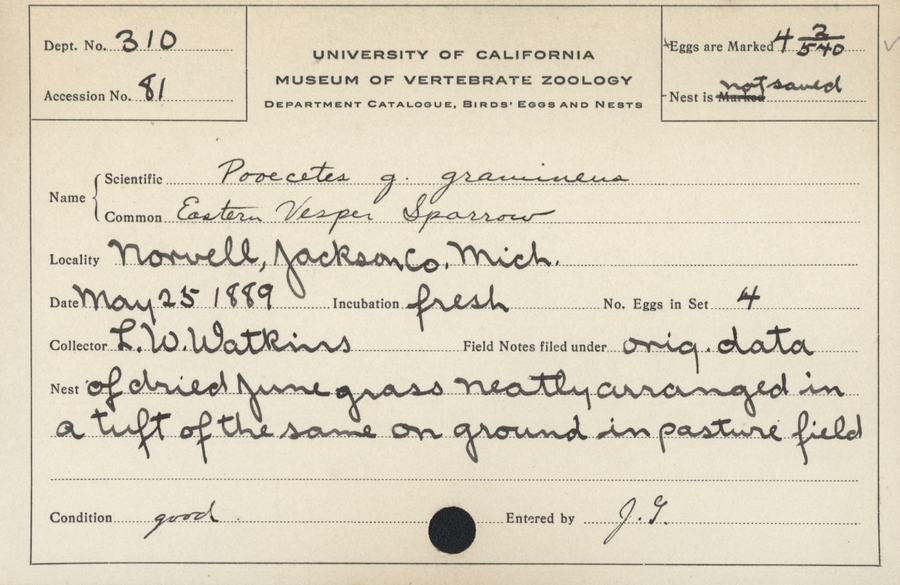 Dept. No. 310
Accession No. 81
UNIVERSITY OF CALIFORNIA
MUSEUM OF VERTEBRATE ZOOLOGY
DEPARTMENT CATALOGUE, BIRDS' EGGS AND NESTS
Eggs are Marked 4 2/540
Nest is Marked not saved
Name
Scientific Pooecetes g. gramineus
Common Eastern Vesper Sparrow
Locality Norvell, Jackson Co. Mich.
Date May 25 1889 Incubation fresh No. Eggs in Set 4
Collector L. W. Watkins Field Notes filed under orig. data
Nest of dried June grass neatly arranged in
a tuft of the same on ground in pasture field
Condition good. Entered by J. G.